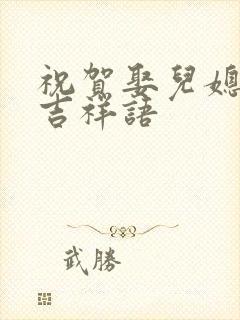 祝賀娶兒媳
吉祥語
武勝